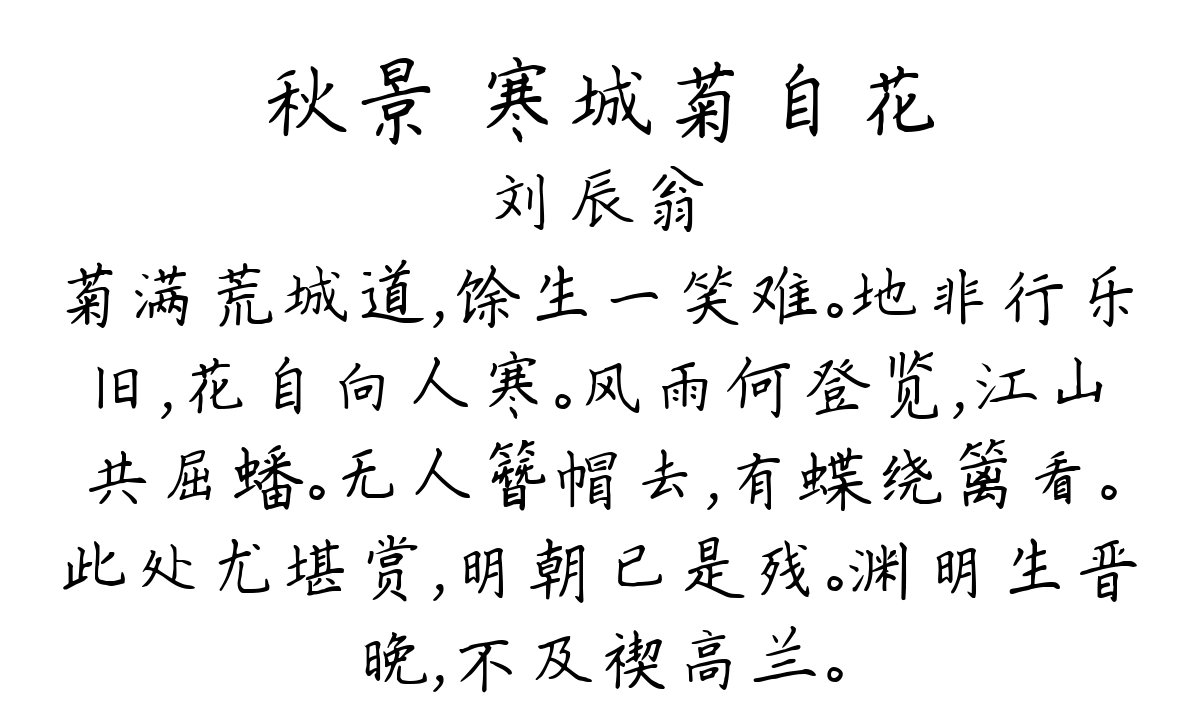 秋景 寒城菊自花
刘辰翁
菊满荒城道,馀生一笑难。地非行乐
旧,花自向人寒。风雨何登览,江山
共屈蟠。无人簪帽去,有蝶绕篱看。
此处尤堪赏,明朝已是残。渊明生晋
晚,不及禊高兰。